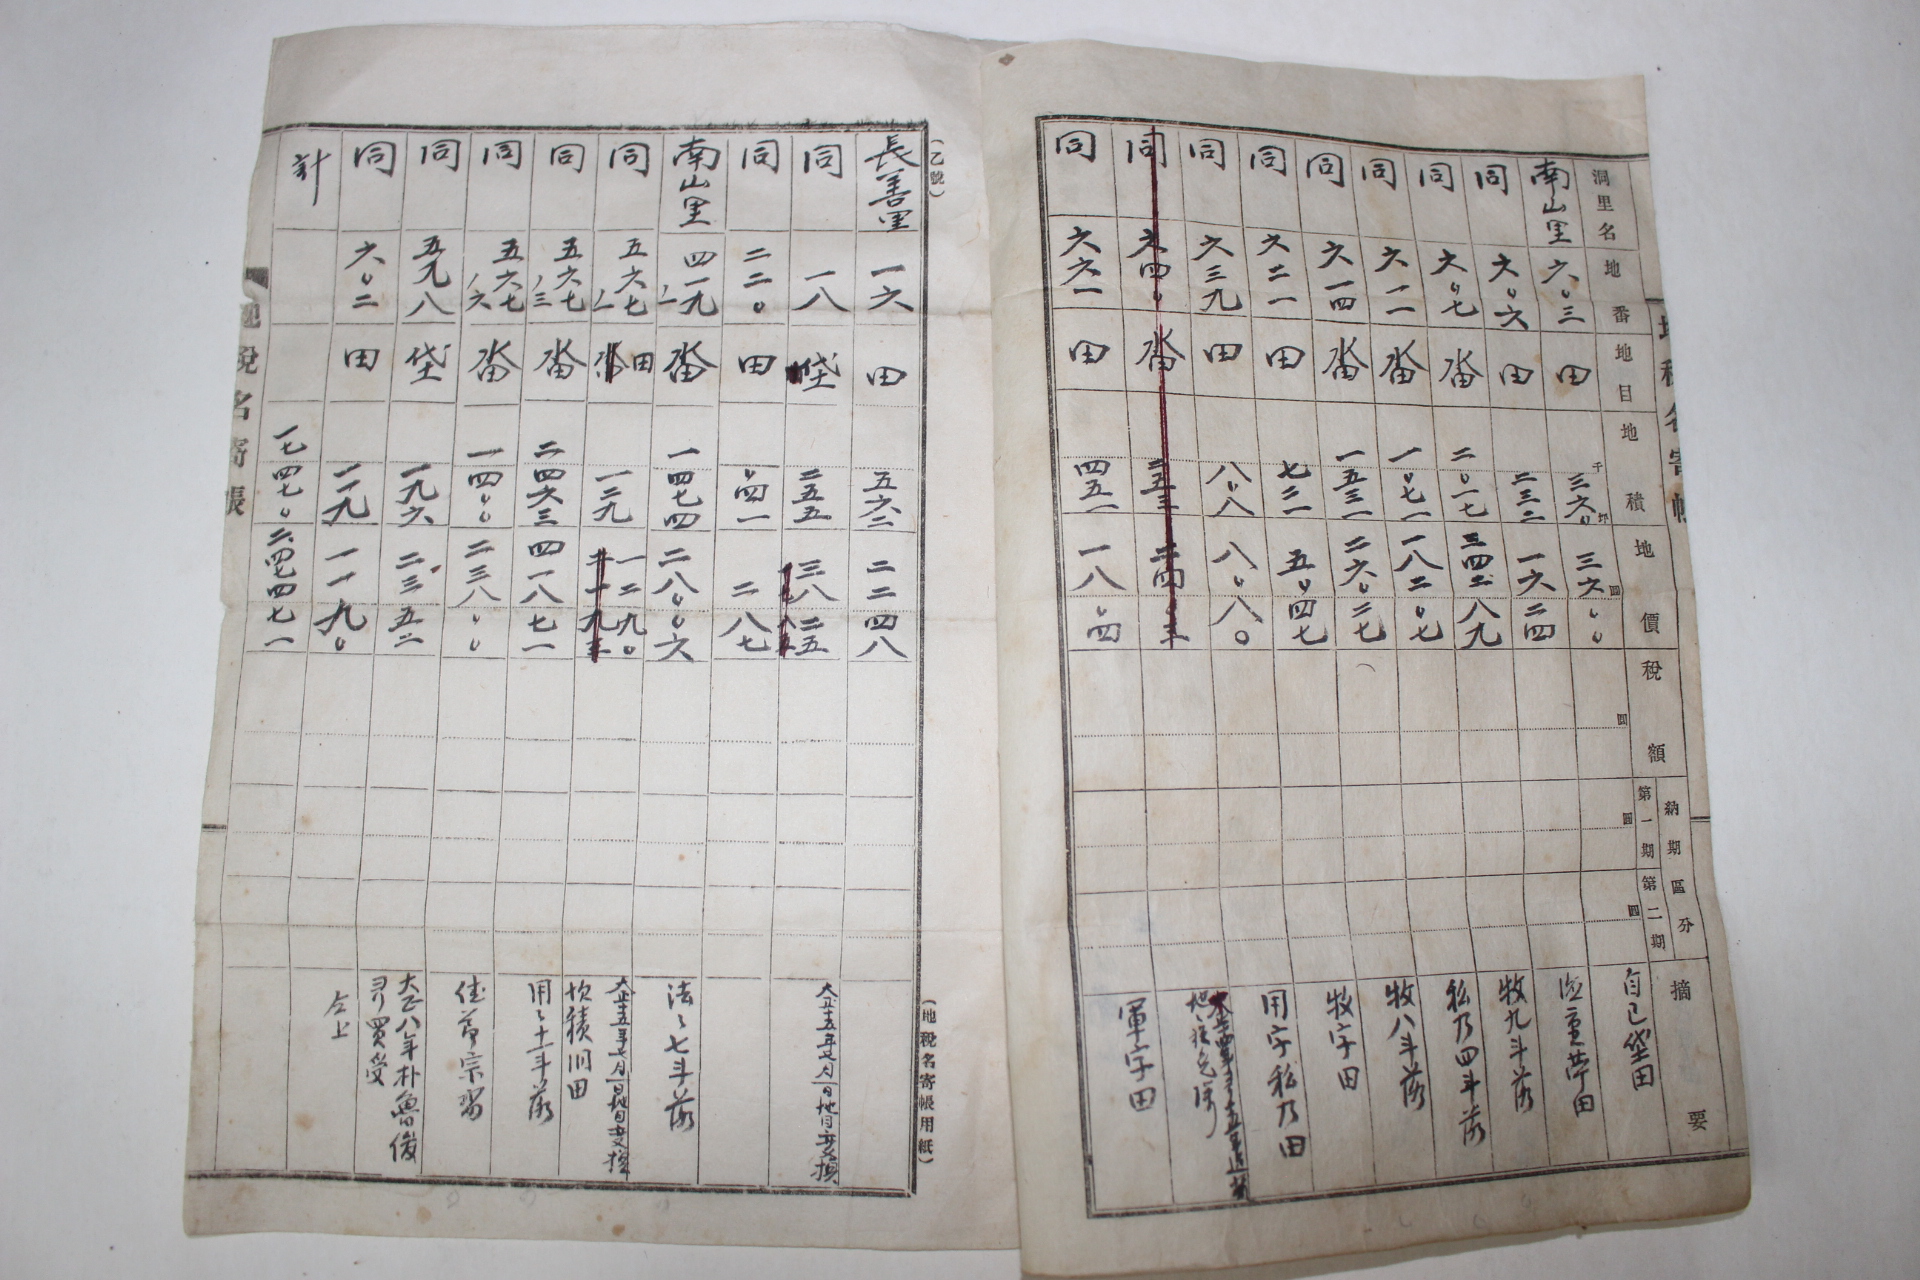 洞里名 地番 地目 地積 地價 稅額 納期區分 第一期 第二期 摘要
南山里 六〇三 田 三六〇 三六〇〇 自己垈田
同 六〇六 田 二三二 一六二四
同 六〇七 畓 二〇一七 三四二八九 牧九斗落
同 六一一 畓 一〇七一 一八二〇七 私乃四斗落
同 六一四 畓 一五三一 二六〇二七 牧八斗落
同 六二一 田 七二一 五〇四七 牧字田
同 六三九 田 八〇八 八〇八〇 用字私乃田
同 六四〇 畓
同 六六一 田 四五一 一八〇四 軍字田
地稅名寄帳
(乙號)
(地稅名寄帳用紙)
長善里 一六 田 五六二 二二四八
同 一八 垈 二五五 三八二五 大正十五年七月一日地目変換
同 二二〇 田 〇四一 二八七
南山里 四一九ノ一 畓 一四七四 二八〇〇六 法〻七斗落
同 五六七ノ一 田 一二九 一二九〇 大正十五年七月一日地目変換
同 五六七ノ三 畓 二四六三 四一八七一 用〻十一斗落
同 五六七ノ六 畓 一四〇〇 二三八〇〇
同 五九八 垈 一九六 二三五二 大正八年朴魯俊 買受
同 六〇二 田 一一九 一一九〇 仝上
計 一七四七〇 二四七四七一
地稅名寄帳